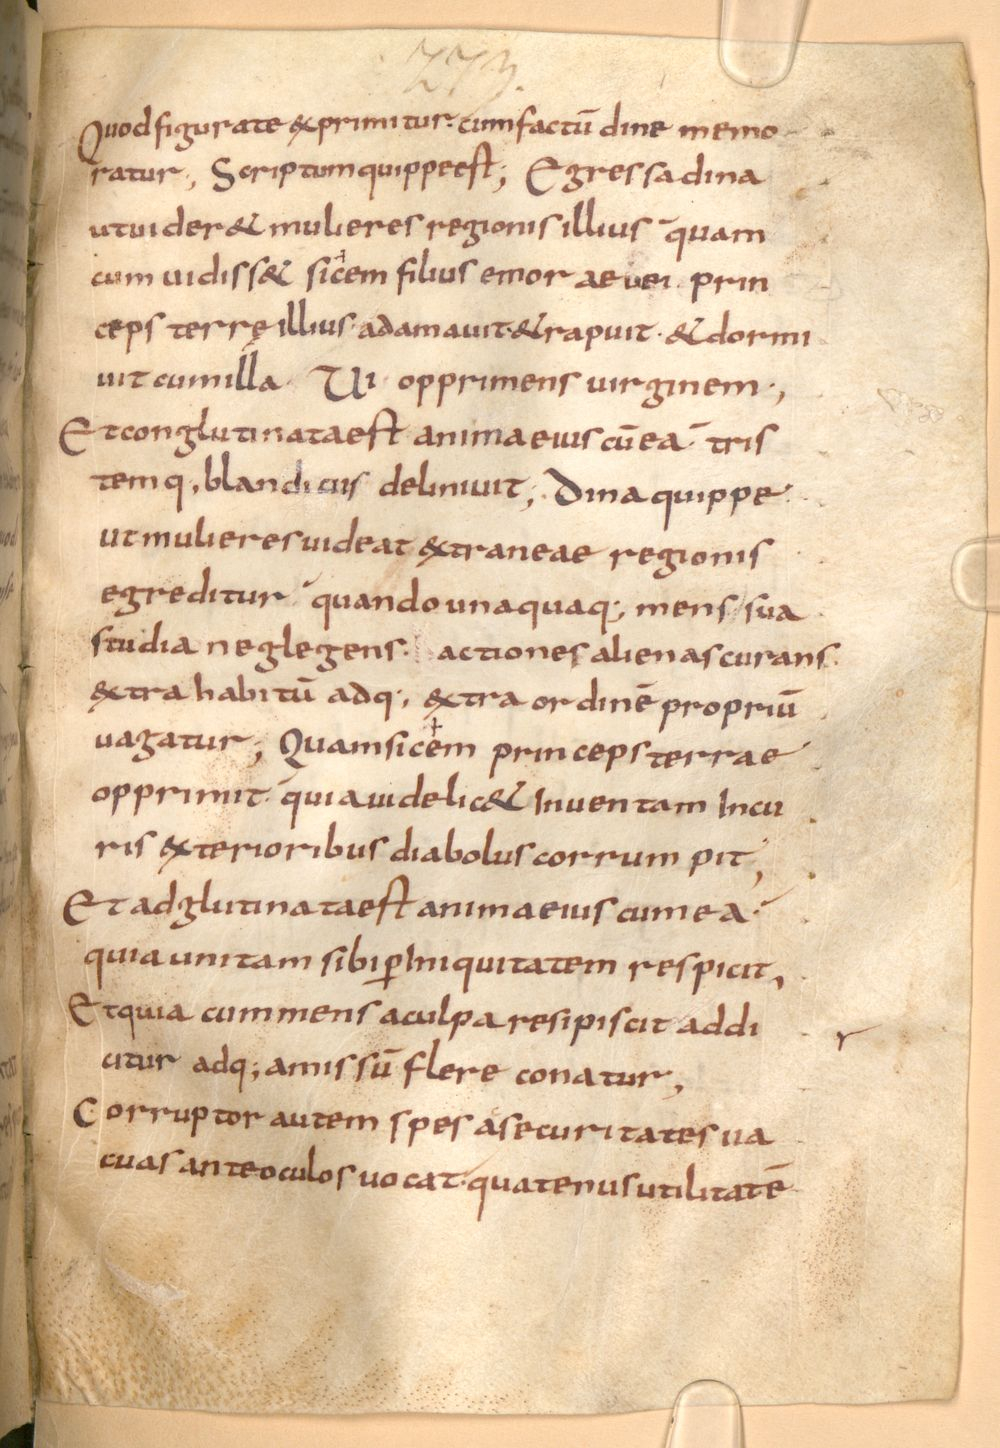 273.
Quod figurate exprimitur. cum factū dine memo
ratur; Scriptum quippe est; Egressa dina
ut uider& mulieres regionis illius quam
cum uidiss& sicem filius emor aeuei prin
ceps terrę illius adamauit & rapuit. & dormi
uit cum illa. Ui opprimens uirginem;
Et conglutinata est anima eius cū ea tris
temq; blanditiis deliniuit; Dina quippe
ut mulieres uideat extraneae regionis
egreditur quando unaquaq; mens sua
studia neglegens. actiones alienas curans.
extra habitū adq; extra ordinē propriū
uagatur; Quam sicem princeps terrae
opprimit quia uidelic& Inuentam Incu
ris exterioribus diabolus corrumpit;
Et adglutinata est anima eius cum ea.
quia unitam sibi ꝑ Iniquitatem respicit,
Et quia cum mens a culpa resipiscit addi
citur adq; amissū flere conatur,
Corruptor autem spes ac securitates ua
cuas ante oculos uocat quatenus utilitatē
r